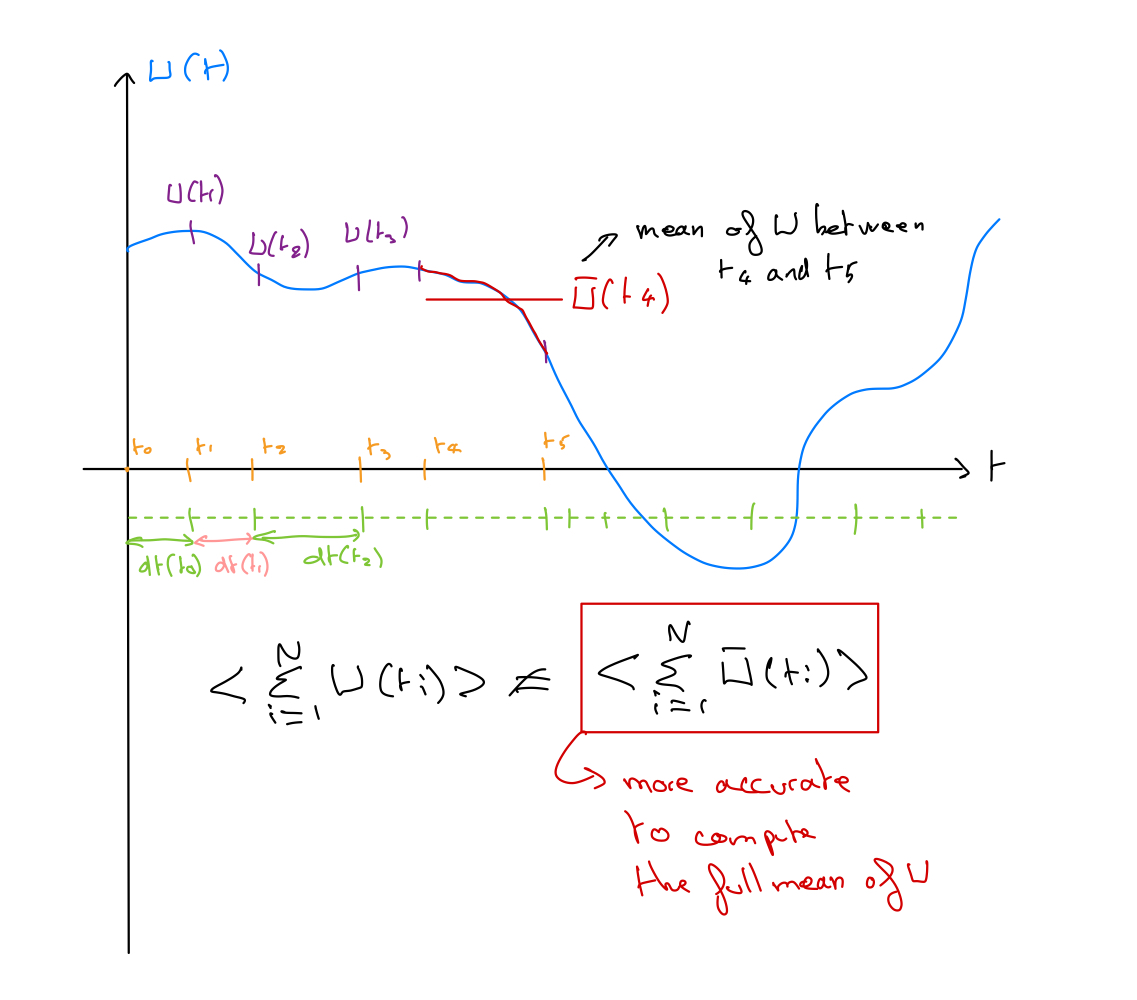 U(t)
U(t₁)
U(t₂)
U(t₃)
mean of U between
t₄ and t₅
Ū(t₄)
t₀ t₁ t₂ t₃ t₄ t₅
t
dt(t₀) dt(t₁) dt(t₂)
< Σᵢ₌₁ᴺ U(tᵢ) > ≠ < Σᵢ₌₁ᴺ Ū(tᵢ) >
more accurate
to compute
the full mean of U